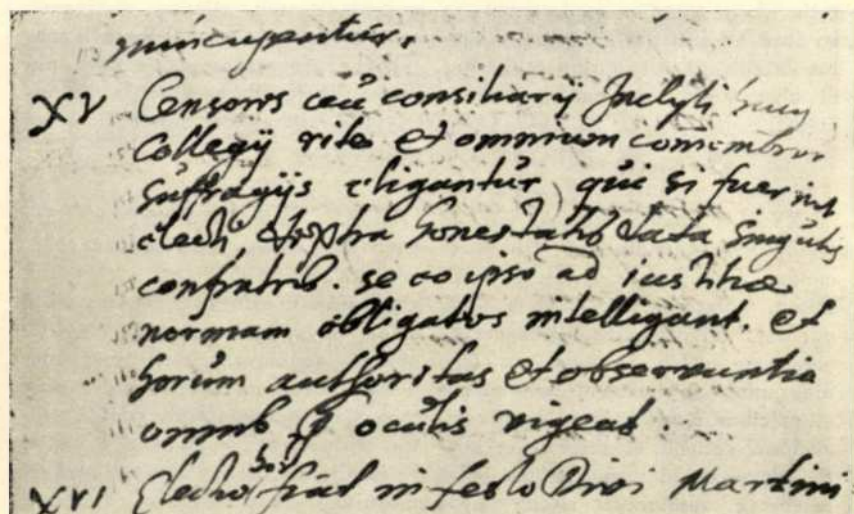 nuncupentur.
XV Censores ceu consiliarij Inclyti huiq
Collegij rite et omnium comembror
suffragijs eligantur, qui si fuerint
electi, dextra honestatis data singulis
confratrib. se eo ipso ad iustitiae
normam obligatos intelligant. et
horum authoritas et observantia
omnib oculis vigeat.
XVI Electio hor fiat in festo Divi Martini